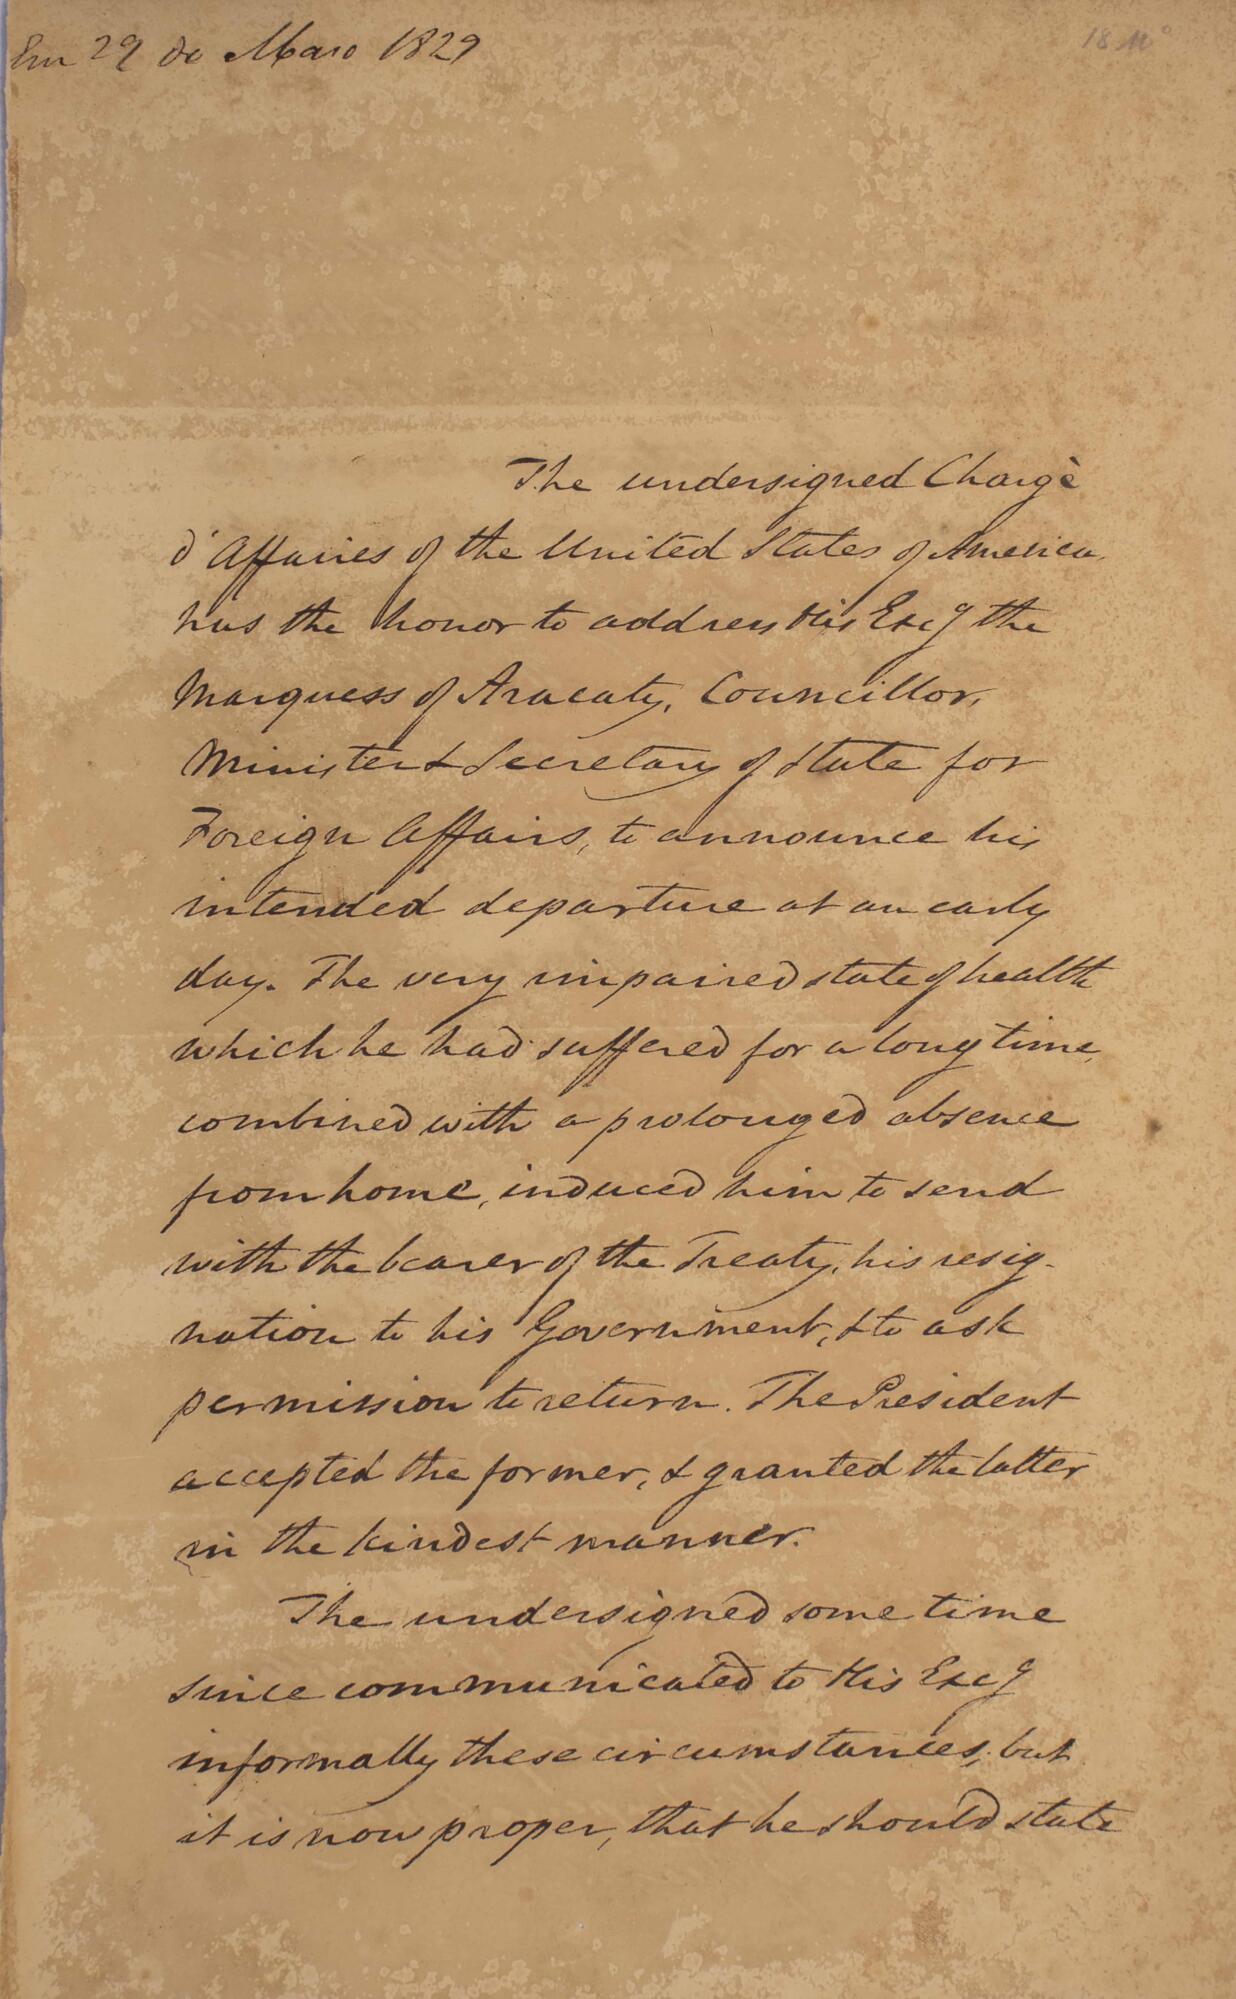 Em 29 de Março 1829
18 Mº
The undersigned Chargè
d'Affaires of the United States of America,
has the honor to address His Excy the
Marquess of Aracaty, Councillor,
Minister & Secretary of State for
Foreign Affairs, to announce his
intended departure at an early
day. The very impaired state of health
which he had suffered for a long time,
combined with a prolonged absence
from home, induced him to send
with the bearer of the Treaty, his resig-
nation to his Government, & to ask
permission to return. The President
accepted the former, & granted the latter
in the kindest manner.
The undersigned some time
since communicated to His Excy
informally these circumstances, but
it is now proper, that he should state